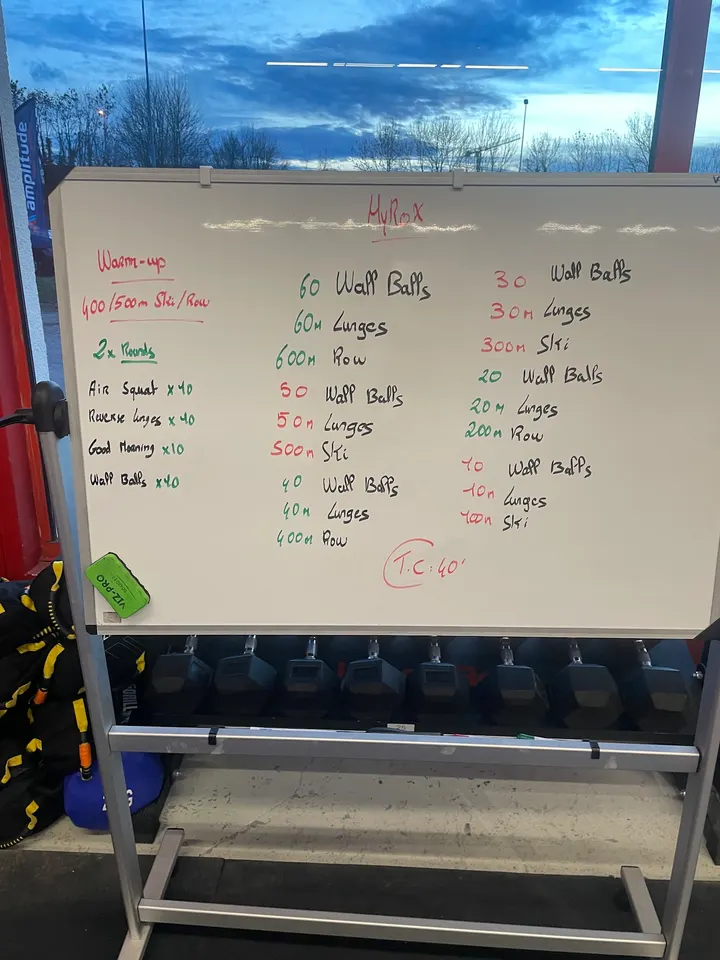 amplitude
HyRoX
Warm-up
400/500m Ski/Row
2x Rounds
Air Squat x10
Reverse lunges x10
Good Morning x10
Wall Balls x10
60 Wall Balls
60m Lunges
600m Row
50 Wall Balls
50m Lunges
500m Ski
40 Wall Balls
40m Lunges
400m Row
30 Wall Balls
30m Lunges
300m Ski
20 Wall Balls
20m Lunges
200m Row
10 Wall Balls
10m Lunges
100m Ski
T.C: 40'
VIZ-PRO